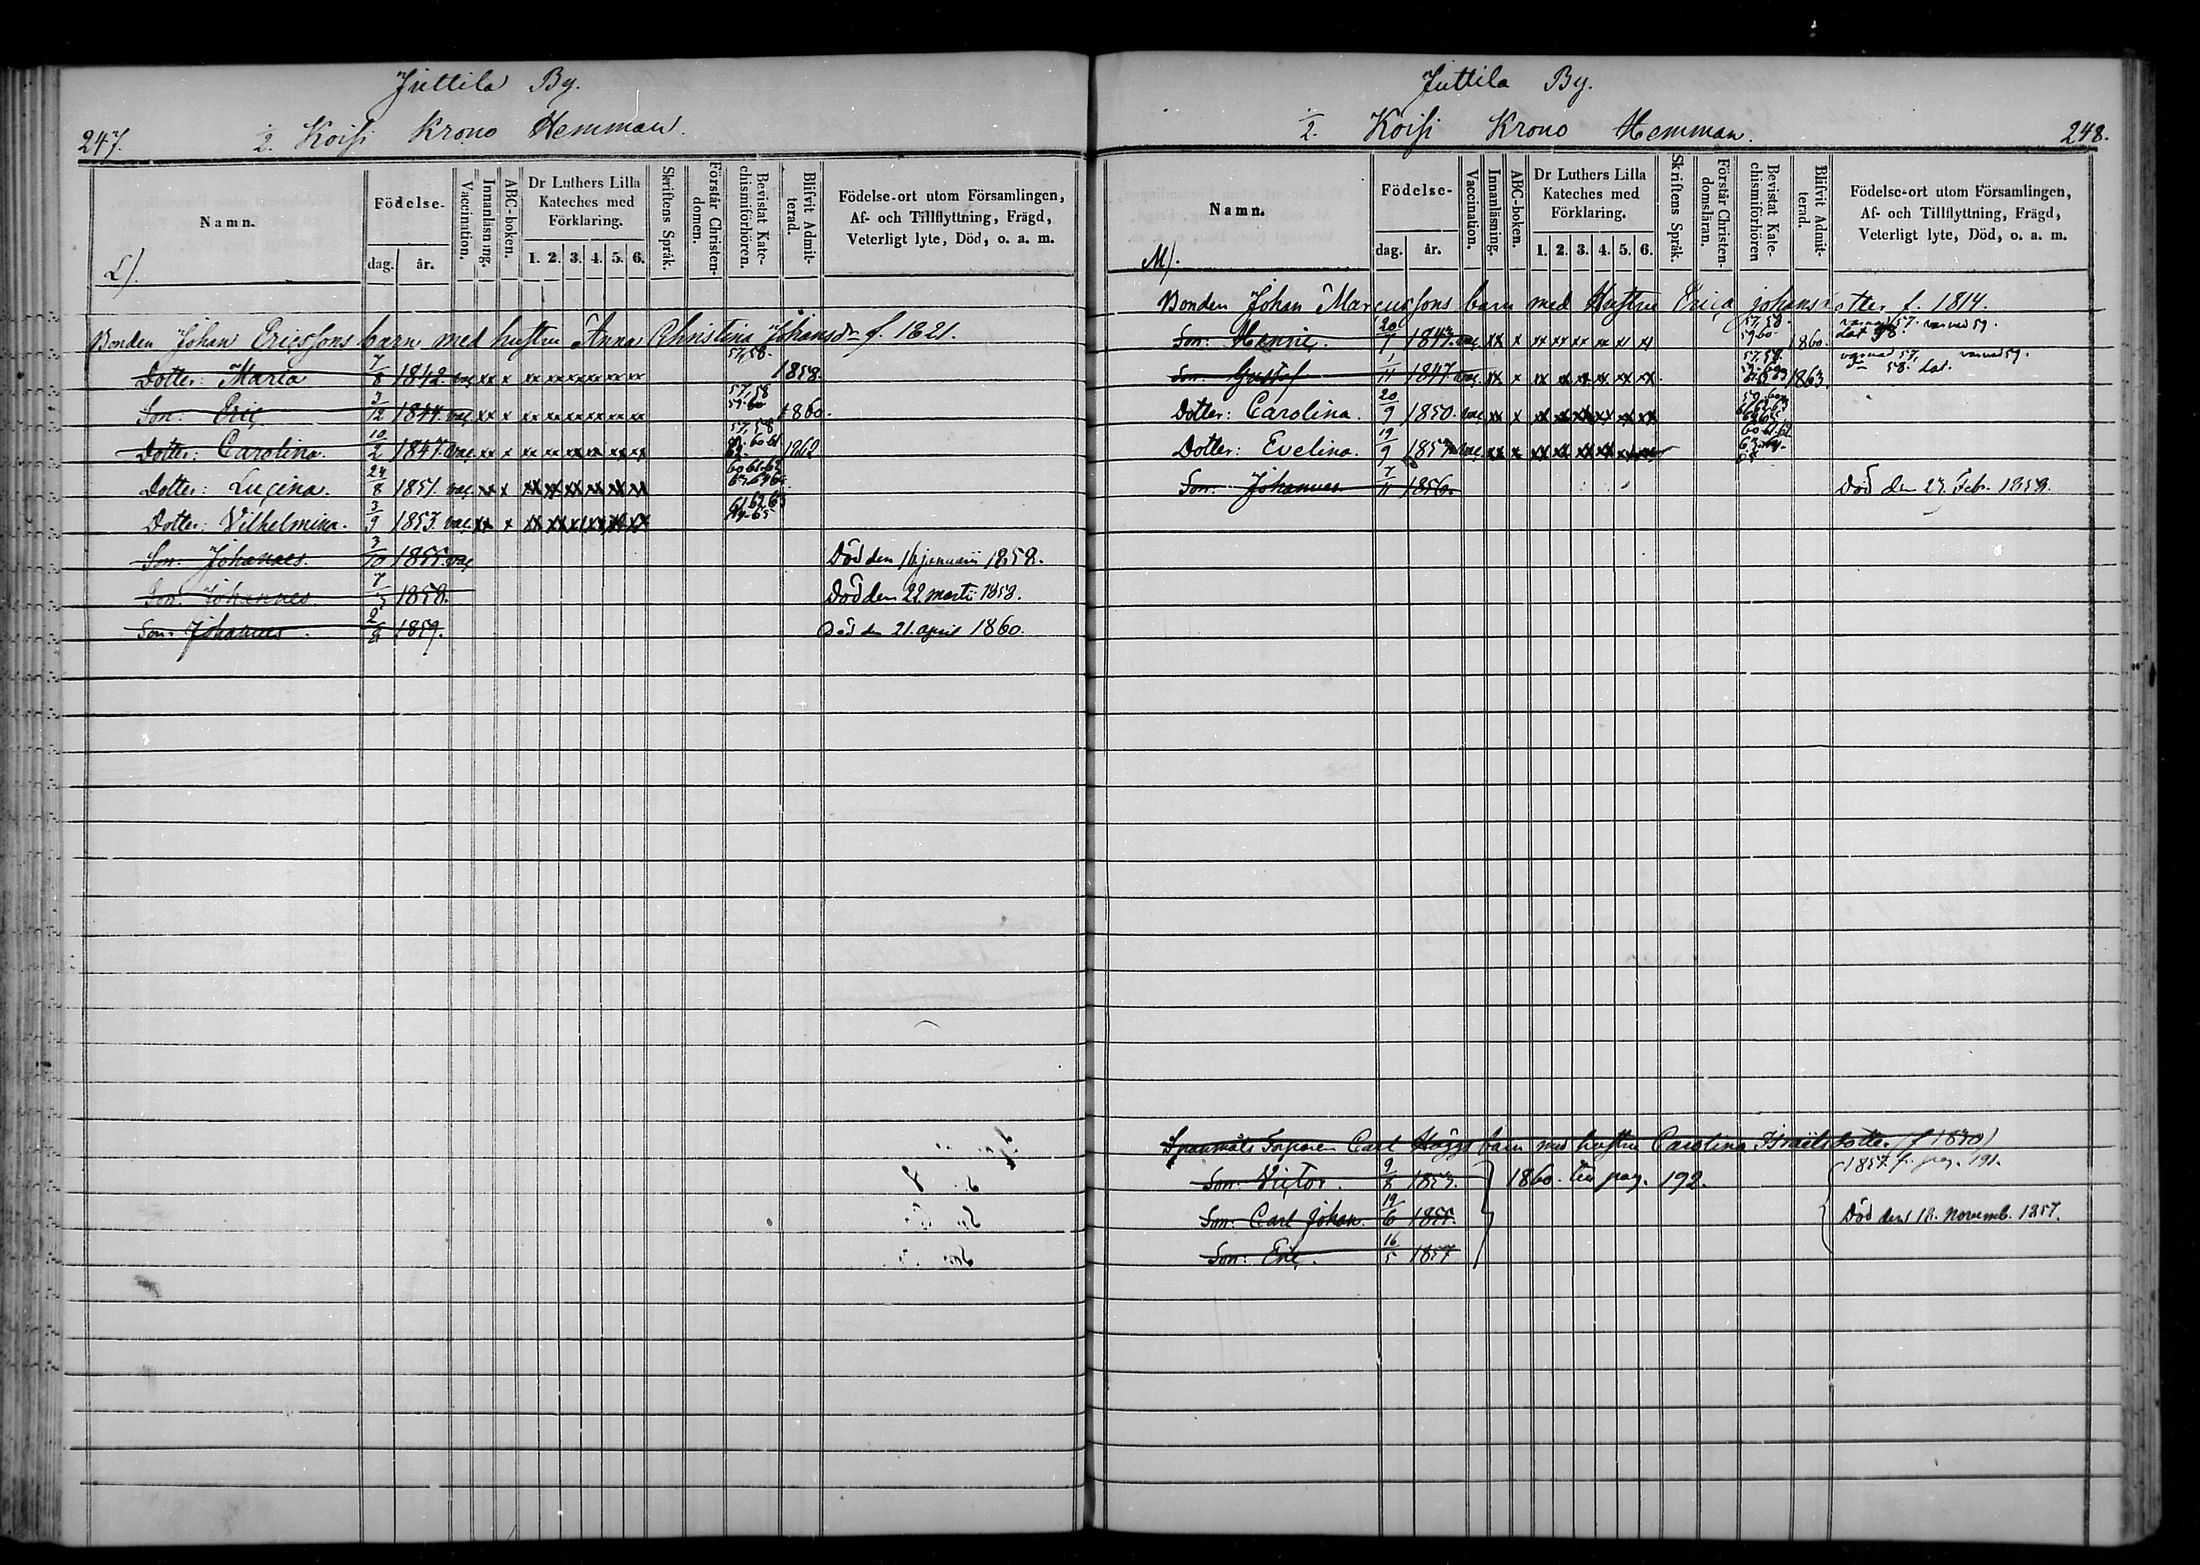 Juttila By.
247. 2. Koisi Krono Hemman.
Namn. Födelse- dag. år. Vaccination. Innanläsning. ABC-boken. Dr Luthers Lilla Kateches med Förklaring. 1. 2. 3. 4. 5. 6. Skriftens Språk. Förstår Christendomen. Bevistat Katechismiförhören. Blifvit Admitterad. Födelse-ort utom Församlingen, Af- och Tillflyttning, Frägd, Veterligt lyte, Död, o. a. m.
L).
Bonden Johan Ericssons barn med hustru Anna Christina Johansdr f. 1821.
Dotter: Maria 7/8 1842. vac xx x xx xx xx xx xx xx 57, 58. 1858.
Son: Eric 3/12 1844. vac xx x xx xx xx xx xx xx 57, 58 59. 60 1860.
Dotter: Carolina. 10/2 1847. vac xx x xx xx xx xx xx xx 57, 58 60. 61 62. 1862
Dotter: Lucina. 24/8 1851. vac xx x xx xx xx xx xx xx 60 61. 62
Dotter: Vilhelmina. 3/9 1853. vac xx x xx xx xx xx xx xx 61 62 63 64. 65
Son: Johannes. 3/10 1855. vac Död den 16 januarii 1858.
Son: Johannes. 7/3 1858. Död den 22 martii 1858.
Son: Johannes. 2/8 1859. Död den 21. april 1860.
Juttila By.
2. Koisi Krono Hemman. 248.
Namn. Födelse- dag. år. Vaccination. Innanläsning. ABC-boken. Dr Luthers Lilla Kateches med Förklaring. 1. 2. 3. 4. 5. 6. Skriftens Språk. Förstår Christendomsläran. Bevistat Katechismiförhören Blifvit Admitterad. Födelse-ort utom Församlingen, Af- och Tillflyttning, Frägd, Veterligt lyte, Död, o. a. m.
M).
Bonden Johan Marcussons barn med Hustru Erica johansdotter f. 1814.
Son: Henric. 20/1 1843. vac xx x xx xx xx xx xx xx 57, 58. 59 60 1860. varnad 57. varnad 59.
Son: Gustaf 1/11 1847. vac xx x xx xx xx xx xx xx 57, 58. 1863 varnad 57, varnad 59. 58. lat.
Dotter: Carolina. 20/9 1850. vac xx x xx xx xx xx xx xx
Dotter: Evelina. 19/9 1853. vac xx x xx xx xx xx xx xx 60 61. 62 63. 64. 65
Son: Johannes 7/11 1856. Död den 27. Feb. 1858.
Torparen Carl Höggs barn med hustru Carolina Israelsdotter. (f 1830)
1857 f. pag. 191.
Son: Victor. 9/8 1853. 1860. till pag. 192.
Son: Carl Johan. 19/6 1855. Död den 18. Novemb. 1857.
Son: Eric. 16/5 1857